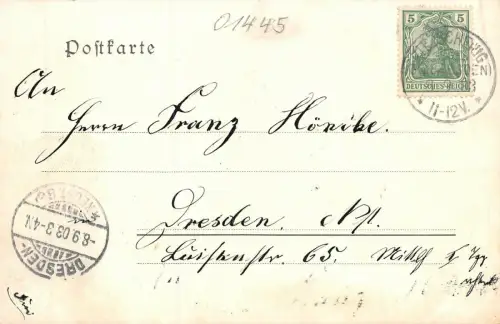 01445
Postkarte
5 5
DEUTSCHES REICH
11-12V.
An
Herrn Franz Hönicke.
Dresden. Nst.
Luisenstr. 65.
DRESDEN-
-8.9.03.3-4N.